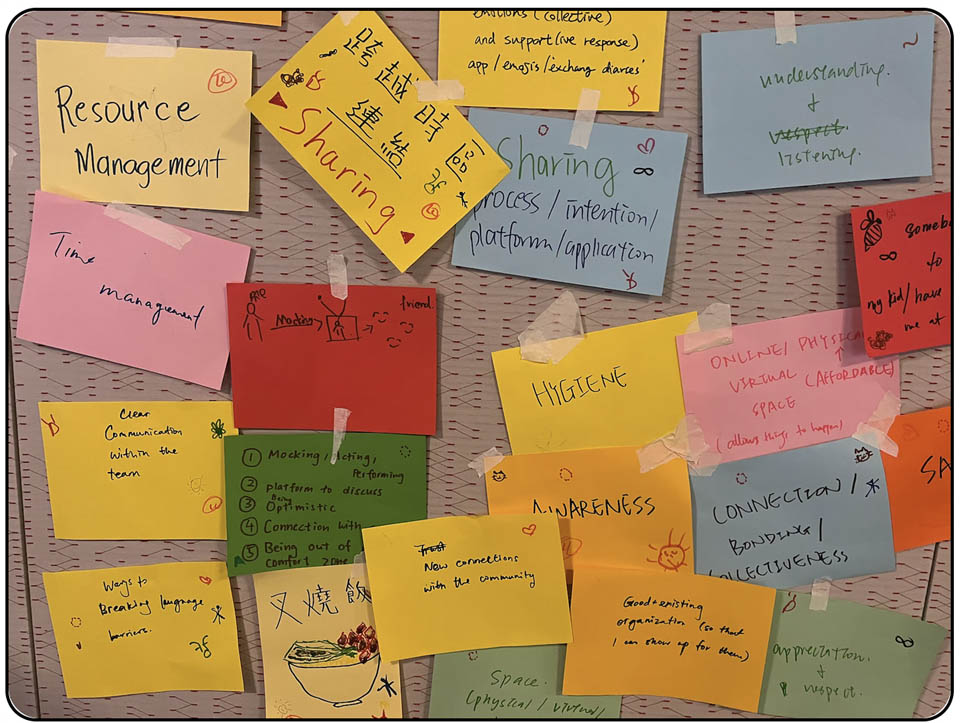 emotions (collective)
and support (live response)
app / emojis / exchang diaries'
Resource
Management
跨越時區
連結
Sharing
Sharing
process / intention /
platform / application
understanding.
+
respect.
listening.
Time
management
Mocking
friend
somebo
to
my kid / have
me at
HYGIENE
ONLINE / PHYSICA
VIRTUAL (AFFORDABLE)
SPACE
( allows things to happen )
Clear
Communication
within the
team
① Mocking, Acting,
Performing
② platform to discuss
③ Being Optimistic
④ Connection with
⑤ Being out of
comfort zone
AWARENESS
CONNECTION /
BONDING /
OLLECTIVENESS
SA
Trust
New connections
with the community
Ways to
Breaking language
barriers.
叉燒飯
Good + existing
organization (so that
I can show up for them.)
appreciation.
+
respect.
Space.
(physical / virtual /